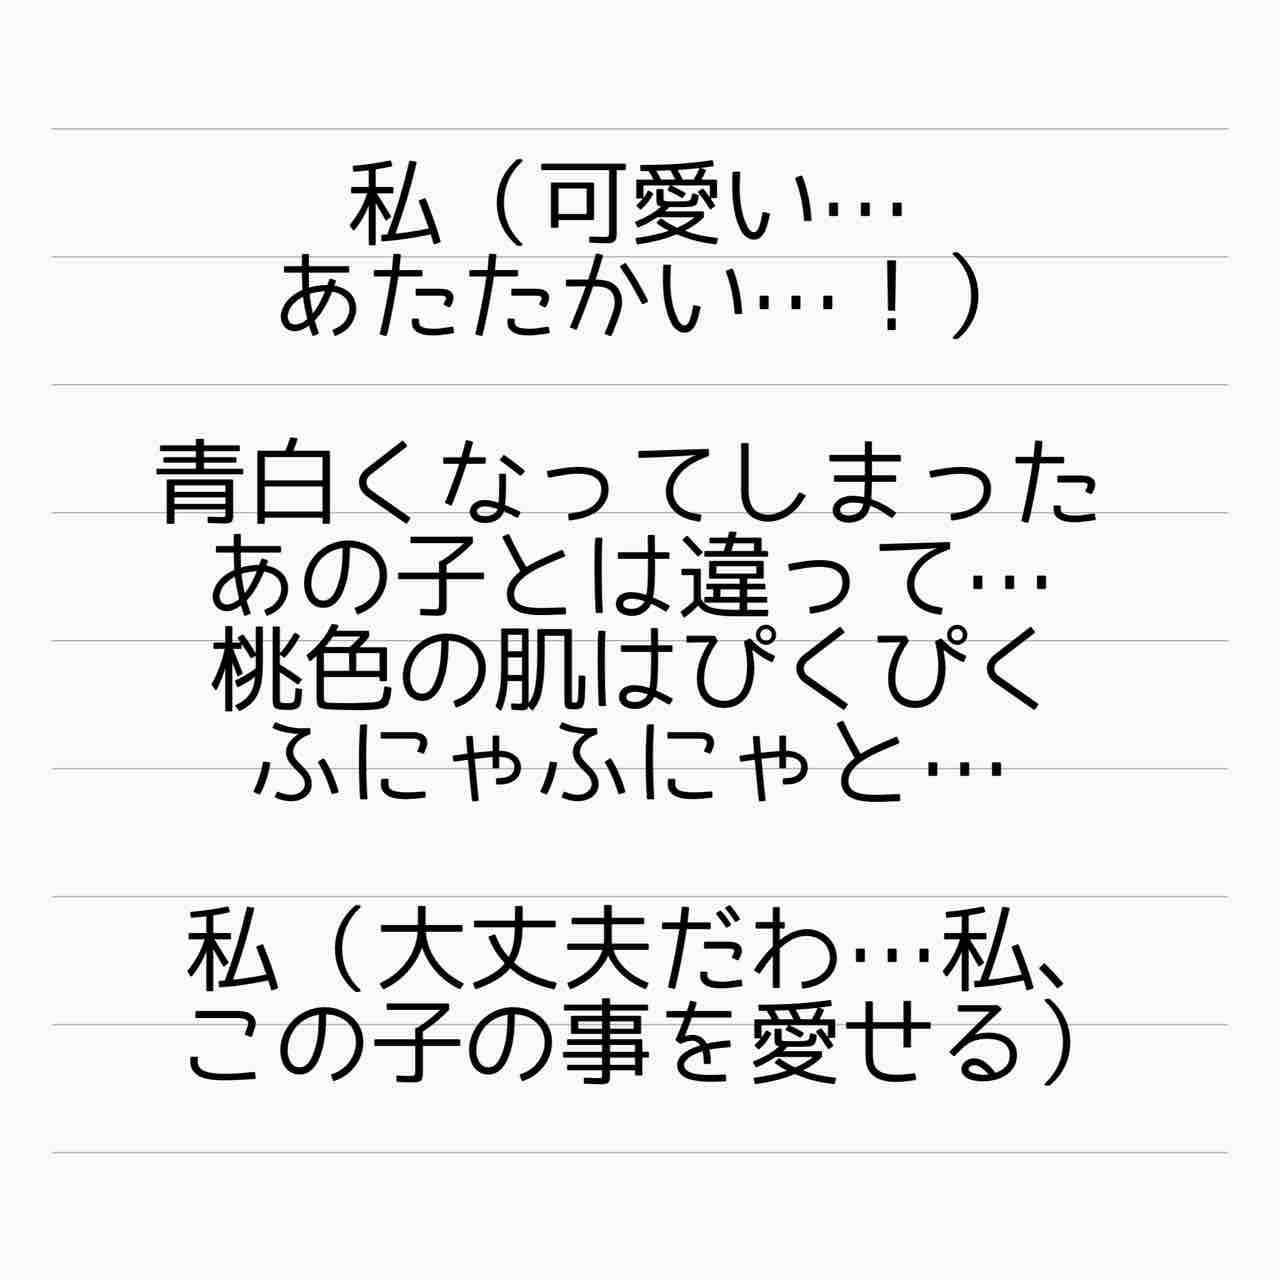 私（可愛い…
あたたかい…！）
青白くなってしまった
あの子とは違って…
桃色の肌はぴくぴく
ふにゃふにゃと…
私（大丈夫だわ…私、
この子の事を愛せる）